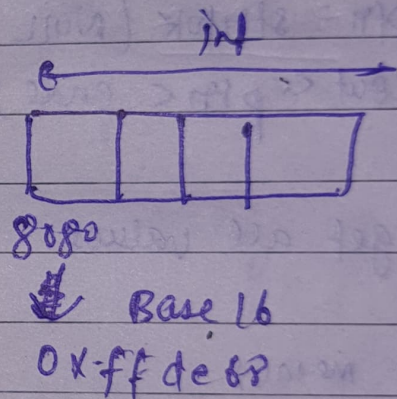 int
8080
Base 16
0x-ffde68